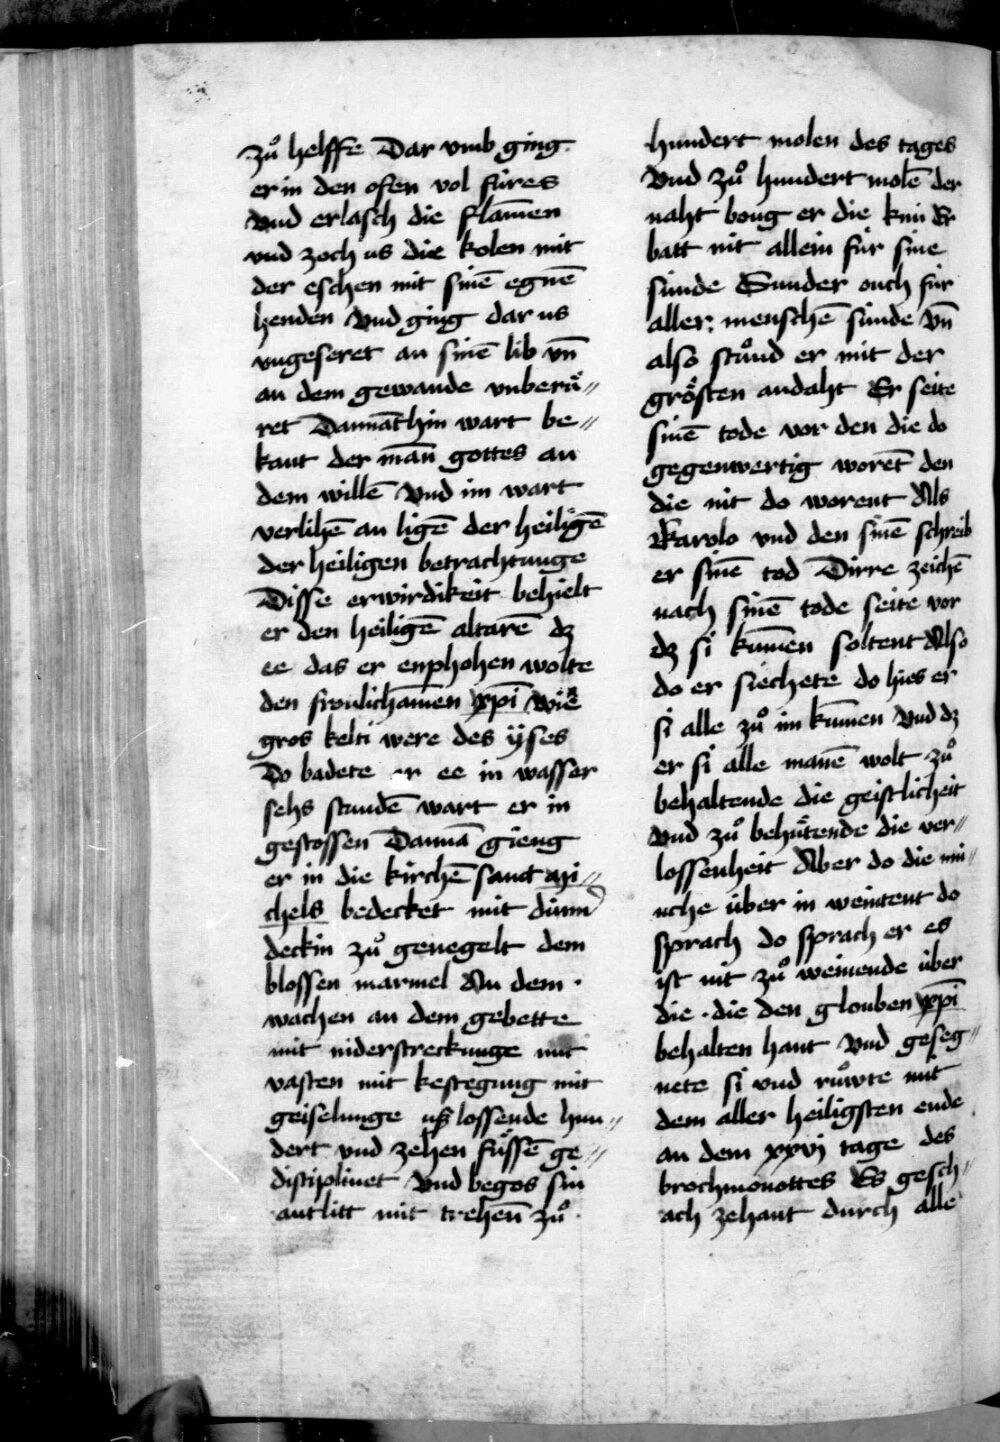 zuͦ helffe Dar vmb ging
er in den ofen vol fúres
Vnd erlasch die flam̄en
vnd zoch us die kolen mit
der eschen mit sinē egnē
henden Vnd ging dar us
vngeseret an sinē lib vn̄
an dem gewande vnberuͤ〃
ret Dannāthin wart be〃
kant der man̄ gottes an
dem willē Vnd im wart
verlihē an ligē der heiligē
der heiligen betrachtunge
Disse erwirdikeit behielt
er den heiligē altarē dz
ee das er enphohen wolte
den fronlicham̄en xp̄i wie
gros kelti were des ÿses
Do badete er ee in wasser
sehs stundē wart er in
gestossen Dannā gieng
er in die kirchē sanct mi〃
chels bedecket mit dúnn
deckin zuͦ genegelt dem
blossen marmel An dem
wachen an dem gebette
mit niderstreckunge mit
vasten mit kestegung mit
geiselunge uſz lossende hun〃
dert vnd zehen fuͤssē ge〃
disciplinet Vnd begos sin
antlitt mit trehen̄ zuͦ
hundert molen des tages
Vnd zuͦ hundert molē der
naht boug er die knú Er
batt nit allein fúr sine
súnde Sunder ouch fúr
aller menschē súnde Vn̄
also stuͦnd er mit der
groͤsten andaht Er seite
sinē tode vor den die do
gegenwertig worēt den
die nit do worent Als
Karolo vnd den sinē schreib
er sinē tod Dirre zeichē
nach sinē tode seite vor
dz si kum̄en soltent Also
do er siechete do hies er
si alle zuͦ im kum̄en Vnd dz
er si alle manē wolt zuͦ
behaltende die geistlicheit
Vnd zuͦ behuͤtende die ver〃
lossenheit Aber do die mú〃
nche über in weintent do
sprach do sprach er es
ist nit zuͦ weinende über
die die den glouben xp̄i
behalten hant Vnd geseg〃
nete si vnd ruͦwte mit
dem aller heiligsten ende
an dem xxvj tage des
brochmonottes Es gesch〃
ach zehant durch alle